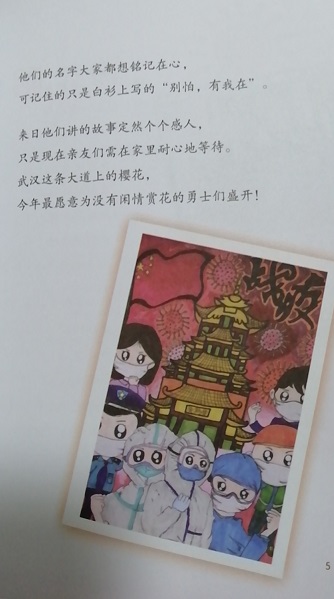 他们的名字大家都想铭记在心，
可记住的只是白衫上写的“别怕，有我在”。
来日他们讲的故事定然个个感人，
只是现在亲友们需在家里耐心地等待。
武汉这条大道上的樱花，
今年最愿意为没有闲情赏花的勇士们盛开！
战疫
5